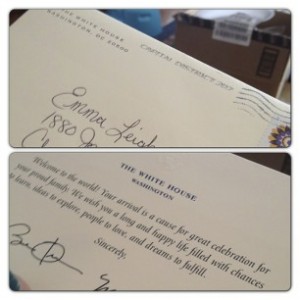 THE WHITE HOUSE
WASHINGTON, DC 20500
CAPITAL DISTRICT 207
Emma Leigh
1880
THE WHITE HOUSE
WASHINGTON
Welcome to the world! Your arrival is a cause for great celebration for
your proud family. We wish you a long and happy life filled with chances
to learn, ideas to explore, people to love, and dreams to fulfill.
Sincerely,